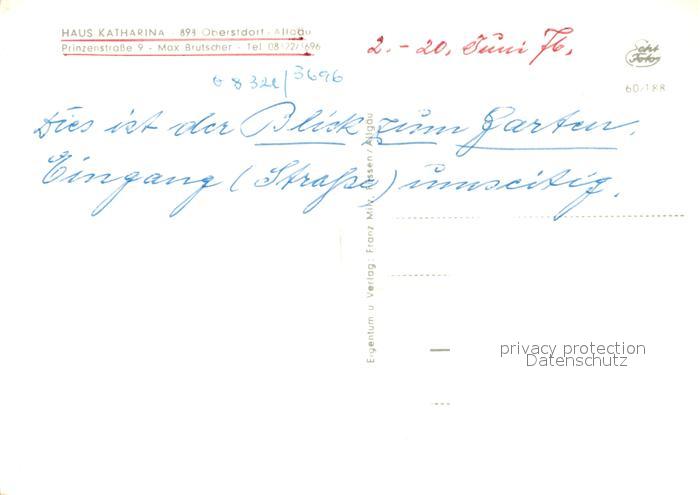 HAUS KATHARINA - 898 Oberstdorf - Allgäu
Prinzenstraße 9 - Max Brutscher - Tel. 08322/3696
2. - 20. Juni 76.
Echt Foto
60/188
08322/3696
Dies ist der Blick zum Garten.
Eingang (Straße) umseitig.
Eigentum u. Verlag: Franz Milz, Füssen/Allgäu
privacy protection
Datenschutz